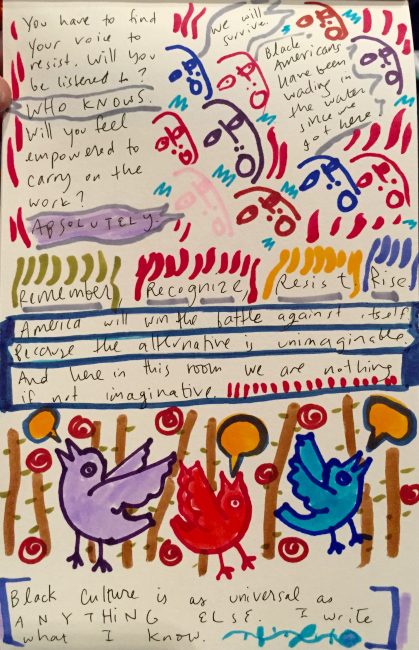 You have to find
your voice to
resist. Will you
be listened to?
WHO KNOWS.
Will you feel
empowered to
carry on the
work?
ABSOLUTELY.
we will
survive.
Black
Americans
have been
wading in
the water
since we
got here!
Remember, Recognize, Resist. Rise
America will win the battle against itself
because the alternative is unimaginable.
And here in this room we are nothing
if not imaginative.
Black Culture is as universal as
ANYTHING ELSE. I write
what I know.